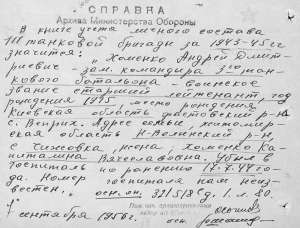 СПРАВКА
Архива Министерства Обороны
В книге учета личного состава
111 танковой бригады за 1943-45 гг
значится: Хоменко Андрей Дмит-
риевич зам. командира 3го тан-
кового батальона воинское
звание старший лейтенант, год
рождения 1915, место рождения
Киевская область р-н
с. Адрес семьи, житомир-
ская область Н-Волынский р-н,
с. Чижовка, жена, Хоменко Ка-
питалина Вячеславовна. Убыл в
госпиталь по ранению 17.7.44 го-
да. Номер госпиталя нам неиз-
вестен. осн. оп. 391518с д. 1 л. 80.
сентября 1956 г.